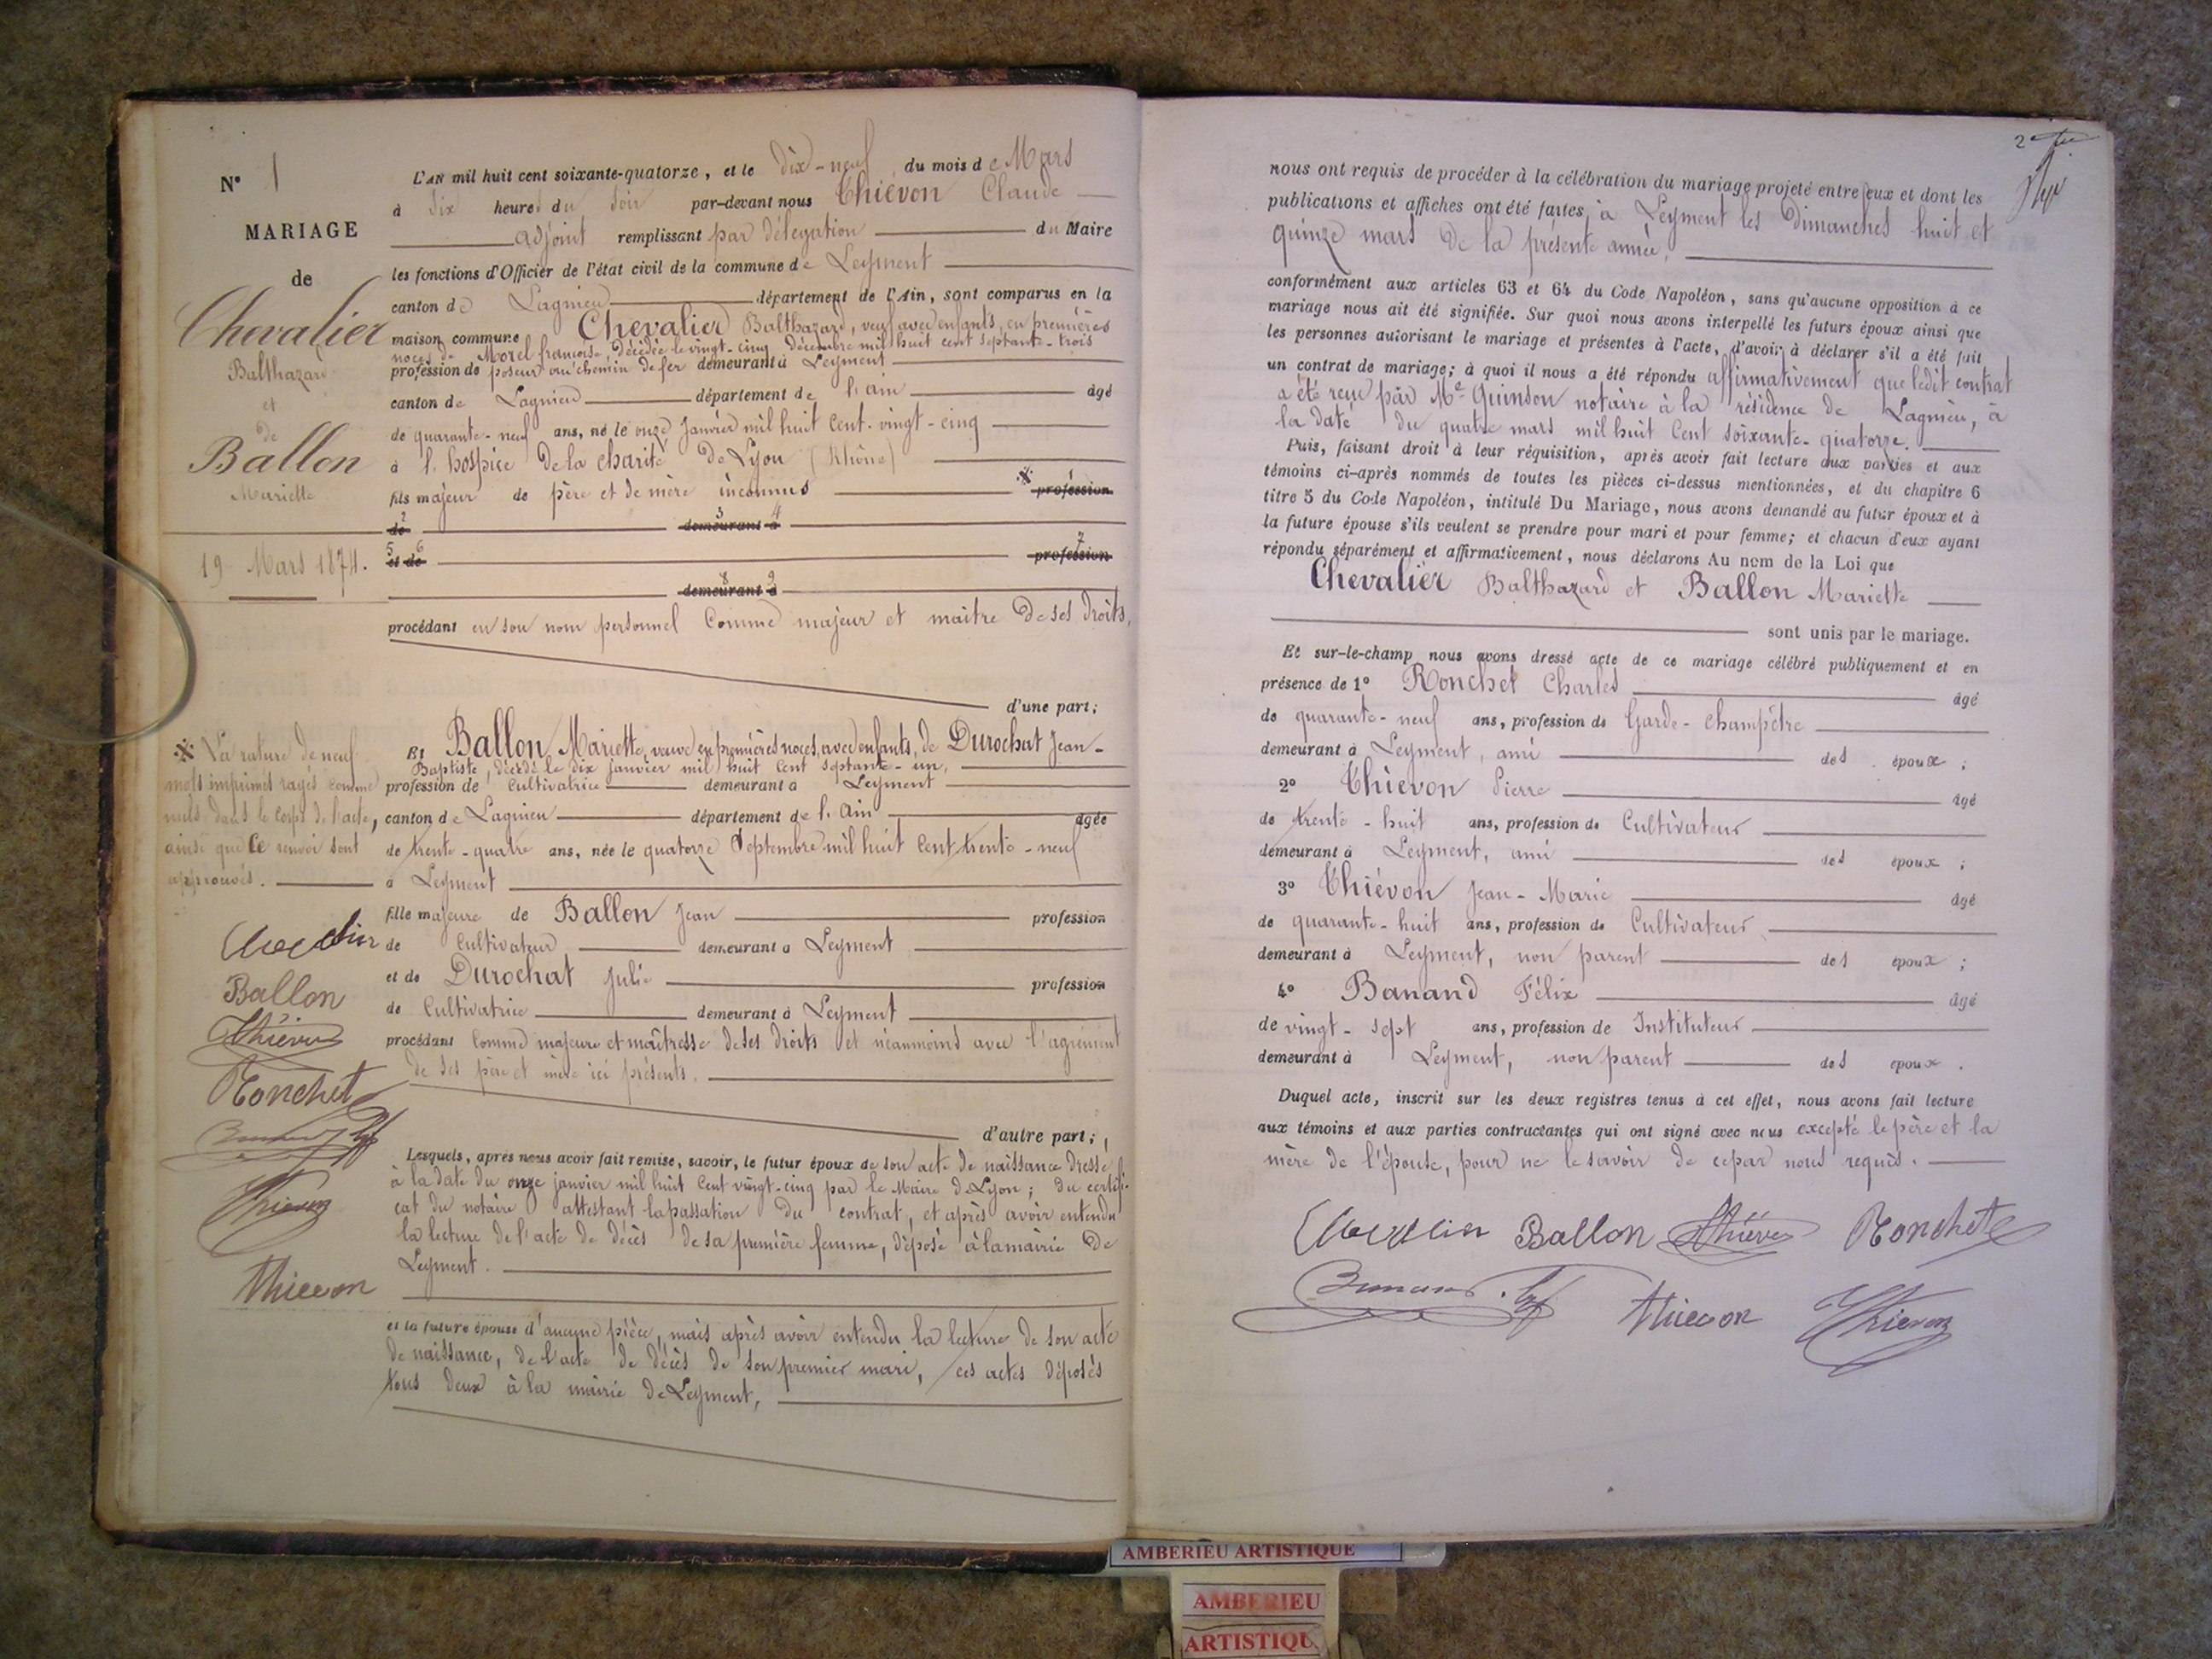 N° 1
MARIAGE
de
Chevalier
Balthazard
et
de
Ballon
Mariette
19 Mars 1874.
L'AN mil huit cent soixante-quatorze, et le dix-neuf du mois de Mars
à six heures du soir par-devant nous Thiévon Claude
adjoint remplissant par délégation du Maire
les fonctions d'Officier de l'état civil de la commune de Leyment
canton de Lagnieu département de l'Ain, sont comparus en la
maison commune Chevalier Balthazard, veuf avec enfants, en premières
noces de Morel françoise décédée le vingt-cinq décembre mil huit cent septante-trois
profession de poseur au chemin de fer demeurant à Leyment
canton de Lagnieu département de l'ain âgé
de quarante-neuf ans, né le onze Janvier mil huit cent vingt-cinq
à l'hospice de la charité de Lyon (Rhône)
fils majeur de père et de mère inconnus profession
de 2 demeurant à 3 4
5 et de 6 profession 7
demeurant à 8 9
procédant en son nom personnel comme majeur et maître de ses droits,
d'une part;
※ La rature de neuf
mots imprimés rayés comme
nuls dans le corps de l'acte,
ainsi que ce renvoi sont
approuvés.
Et Ballon Mariette, veuve en premières noces, avec enfants, de Durochat Jean-
Baptiste, décédé le dix janvier mil huit cent septante-un,
profession de Cultivatrice demeurant à Leyment
canton de Lagnieu département de l'Ain âgée
de trente-quatre ans, née le quatorze Septembre mil huit cent trente-neuf
à Leyment
fille majeure de Ballon Jean profession
de Cultivateur demeurant à Leyment
et de Durochat Julie profession
de Cultivatrice demeurant à Leyment
procédant comme majeure et maîtresse de ses droits et néanmoins avec l'agrément
de ses père et mère ici présents.
d'autre part;
Ballon
Thiévon
Ronchet
Thievon
Thievon
Lesquels, après nous avoir fait remise, savoir, le futur époux de son acte de naissance dressé
à la date du onze janvier mil huit cent vingt-cinq par le Maire de Lyon; du certifi-
cat du notaire attestant la passation du contrat, et après avoir entendu
la lecture de l'acte de décès de sa première femme, déposé à la mairie de
Leyment.
et la future épouse d'aucune pièce, mais après avoir entendu la lecture de son acte
de naissance, de l'acte de décès de son premier mari, ces actes déposés
tous deux à la mairie de Leyment,
2
nous ont requis de procéder à la célébration du mariage projeté entre eux et dont les
publications et affiches ont été faites, à Leyment les Dimanches huit et
quinze mars de la présente année,
conformément aux articles 63 et 64 du Code Napoléon, sans qu'aucune opposition à ce
mariage nous ait été signifiée. Sur quoi nous avons interpellé les futurs époux ainsi que
les personnes autorisant le mariage et présentes à l'acte, d'avoir à déclarer s'il a été fait
un contrat de mariage; à quoi il nous a été répondu affirmativement que ledit contrat
a été reçu par Me Quinson notaire à la résidence de Lagnieu, à
la date du quatre mars mil huit cent soixante-quatorze.
Puis, faisant droit à leur réquisition, après avoir fait lecture aux parties et aux
témoins ci-après nommés de toutes les pièces ci-dessus mentionnées, et du chapitre 6
titre 5 du Code Napoléon, intitulé Du Mariage, nous avons demandé au futur époux et à
la future épouse s'ils veulent se prendre pour mari et pour femme; et chacun d'eux ayant
répondu séparément et affirmativement, nous déclarons Au nom de la Loi que
Chevalier Balthazard et Ballon Mariette
sont unis par le mariage.
Et sur-le-champ nous avons dressé acte de ce mariage célébré publiquement et en
présence de 1° Ronchet Charles âgé
de quarante-neuf ans, profession de Garde-Champêtre
demeurant à Leyment, ami des époux;
2° Thiévon Pierre âgé
de trente-huit ans, profession de Cultivateur
demeurant à Leyment, ami des époux;
3° Thiévon Jean-Marie âgé
de quarante-huit ans, profession de Cultivateur
demeurant à Leyment, non parent des époux;
4° Banand Félix âgé
de vingt-sept ans, profession de Instituteur
demeurant à Leyment, non parent des époux.
Duquel acte, inscrit sur les deux registres tenus à cet effet, nous avons fait lecture
aux témoins et aux parties contractantes qui ont signé avec nous excepté le père et la
mère de l'épouse, pour ne le savoir de ce par nous requis.
Ballon Thiévon Ronchet
Thievon Thievon
AMBERIEU ARTISTIQUE
AMBERIEU
ARTISTIQU